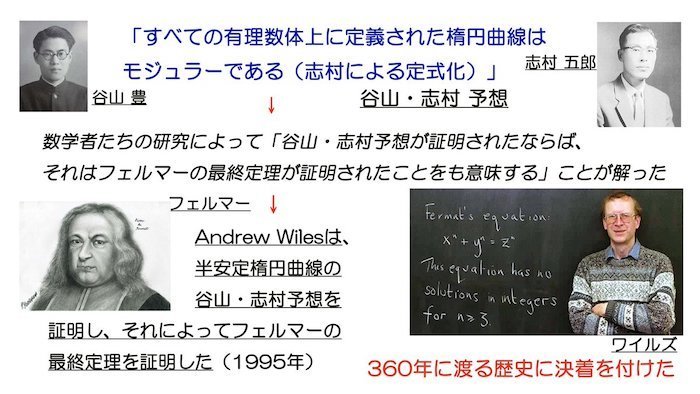 「すべての有理数体上に定義された楕円曲線は
モジュラーである(志村による定式化)」
志村 五郎
谷山 豊
谷山・志村 予想
↓
数学者たちの研究によって「谷山・志村予想が証明されたならば、
それはフェルマーの最終定理が証明されたことをも意味する」ことが解った
フェルマー
↓
Andrew Wilesは、
半安定楕円曲線の
谷山・志村予想を
証明し、それによってフェルマーの
最終定理を証明した(1995年)
Fermat's equation:
xⁿ + yⁿ = zⁿ
This equation has no
solutions in integers
for n ≥ 3.
ワイルズ
360年に渡る歴史に決着を付けた